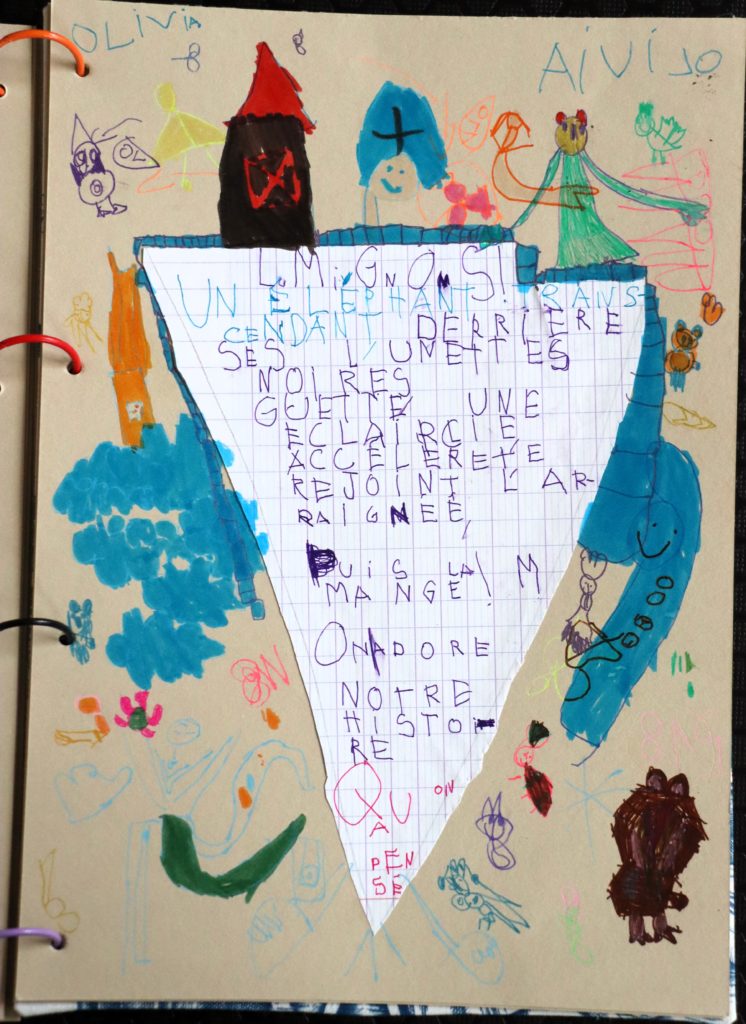 OLIVIA
AIVIJO
OL
L.MiGNONS!
UN ÉLÉPHANT TRANS-
CENDANT, DERRIÈRE
SES LUNETTES
NOIRES
GUETTE UNE
ECLAIRCIE,
ACCELERE ET
REJOINT L'AR-
RAIGNEE,
PUiS LA
MANGE! M
ON ADORE
NOTRE
HISTOi-
RE
QU'ON
A
PEN
SÉ